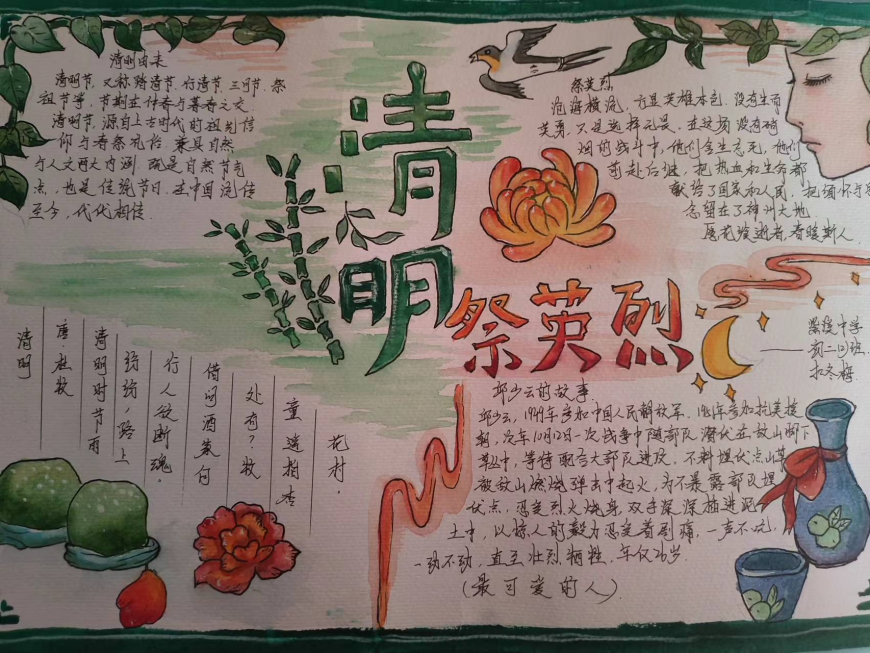 清明由来
清明节,又称踏青节、行清节、三月节、祭
祖节等,节期在仲春与暮春之交。
清明节,源自上古时代的祖先信
仰与春祭礼俗,兼具自然
与人文两大内涵,既是自然节气
点,也是传统节日,在中国流传
至今,代代相传.
清
明
祭英烈
祭英烈
沧海横流,方显英雄本色,没有生而
英勇,只是选择无畏,在这场没有硝
烟的战斗中,他们舍生忘死,他们
前赴后继,把热血和生命都
献给了国家和人民,把缅怀与
念望在了神州大地
愿花漫逝者,春暖斯人
中学
初二(2)班
邱少云的故事
邱少云,1949年参加中国人民解放军,1951年参加抗美援
朝,次年10月12日一次战争中随部队潜伏在敌山脚下
草丛中,等待配合大部队进攻,不料埋伏点山草
被敌山燃烧弹击中起火,为不暴露部队埋
伏点,忍受烈火烧身,双手深深插进泥
土中,以惊人的毅力忍受着剧痛,一声不吭,
一动不动,直至壮烈牺牲,年仅26岁.
(最可爱的人)
清明
唐·杜牧
清明时节雨
纷纷,路上
行人欲断魂.
借问酒家何
处有?牧
童遥指杏
花村.